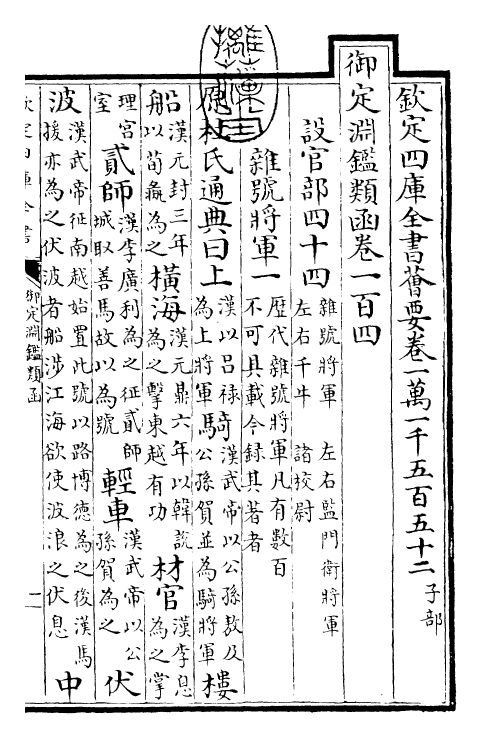 欽定四庫全書薈要卷一萬一千五百五十二 子部
御定淵鑑類函卷一百四
設官部四十四 雜號將軍 左右監門衛將軍 左右千牛 諸校尉
雜號將軍一 歴代雜號將軍凡有數百不可具載今録其著者
原杜氏通典曰上 漢以吕禄為上將軍 騎 漢武帝以公孫敖及公孫賀並為騎將軍 樓
船 漢元封三年以荀彘為之 橫海 漢元鼎六年以韓説為之擊東越有功 材官 漢李息為之掌
理宫室 貳師 漢李廣利為之征貳師城取善馬故以為號 輕車 漢武帝以公孫賀為之 伏
波 漢武帝征南越始置此號以路博德為之後漢馬援亦為之伏波者船涉江海欲使波浪之伏息 中
欽定四庫全書
御定淵鑑類函